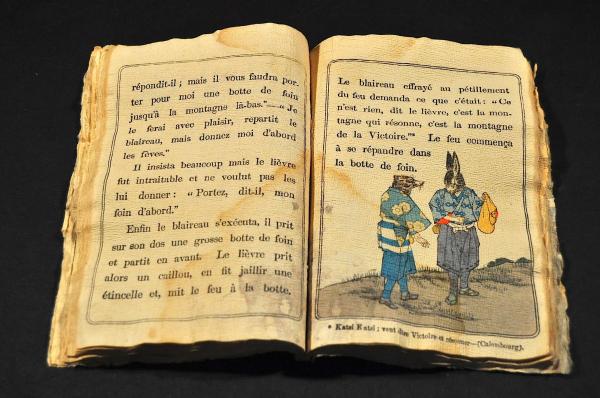 répondit-il ; mais il vous faudra por-
ter pour moi une botte de foin
jusqu'à la montagne là-bas."—"Je
le ferai avec plaisir, repartit le
blaireau, mais donnez moi d'abord
les fèves."
Il insista beaucoup mais le lièvre
fut intraitable et ne voulut pas les
lui donner : "Portez, dit-il, mon
foin d'abord."
Enfin le blaireau s'exécuta, il prit
sur son dos une grosse botte de foin
et partit en avant. Le lièvre prit
alors un caillou, en fit jaillir une
étincelle et, mit le feu à la botte.
Le blaireau effrayé au pétillement
du feu demanda ce que c'était : "Ce
n'est rien, dit le lièvre, c'est la mon-
tagne qui résonne, c'est la montagne
de la Victoire."* Le feu commença
à se répandre dans
la botte de foin.
* Katsi Katsi ; veut dire Victoire et résonner—(Calembourg).